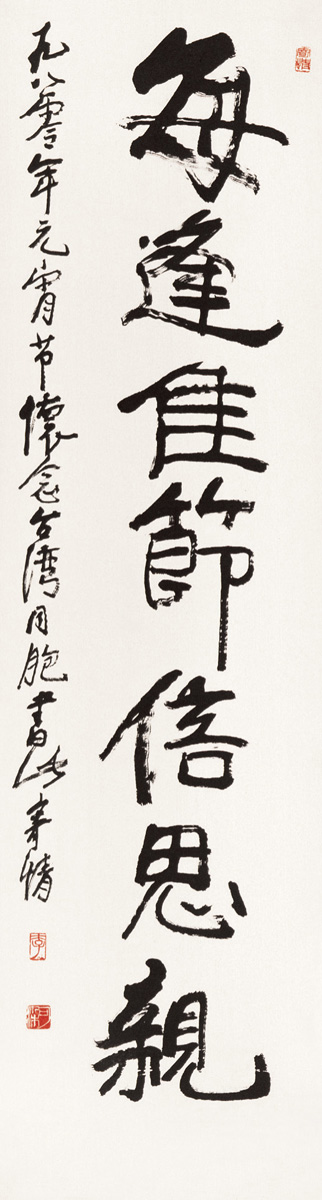 每逢佳節倍思親
一九八零年元宵节懷念台湾同胞書此寄情